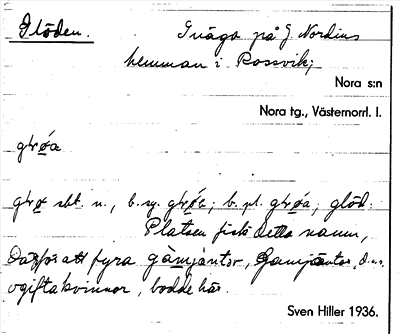 Glöden.
Stuga på J. Nordins
hemman i Rossvik;
Nora s:n
Nora tg., Västernorrl. l.
gløa
glø sbt. n., b. sg. gløa; b. pl. gløa; glöd.
Platsen fick detta namn,
Därför att fyra gàmjäntor, Gamjäntor, d.v.s.
ogifta kvinnor, bodde här.
Sven Hiller 1936.